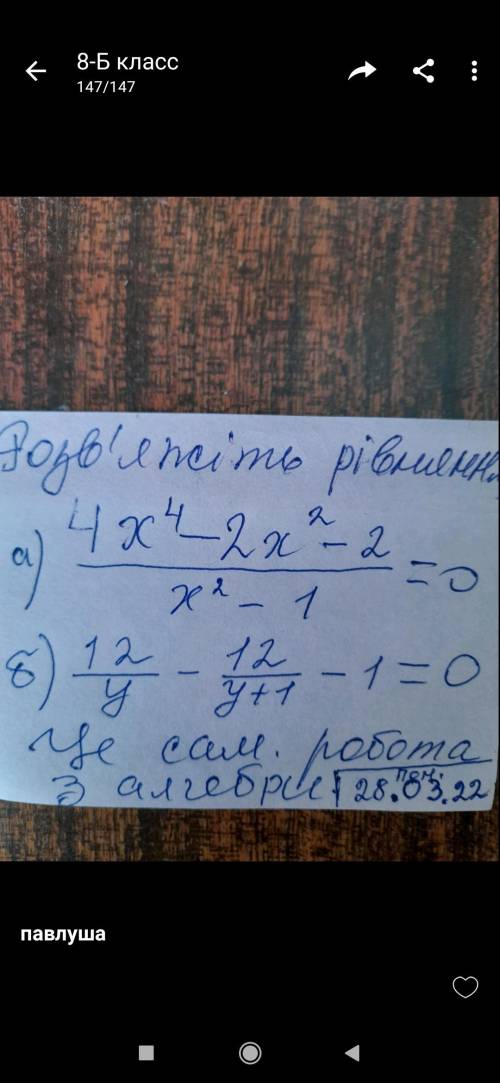 8-Б класс
147/147
Розв'яжіть рівняння
а) 4x⁴-2x²-2 / x²-1 = 0
б) 12/y - 12/y+1 - 1 = 0
Це сам. робота
з алгебри 28.03.22
павлуша